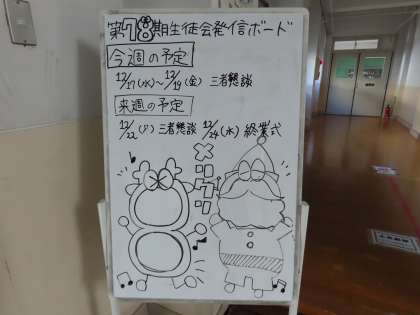 第78期生徒会発信ボード
今週の予定
12/17(水)〜12/19(金) 三者懇談
来週の予定
12/22(月)三者懇談 12/24(水) 終業式